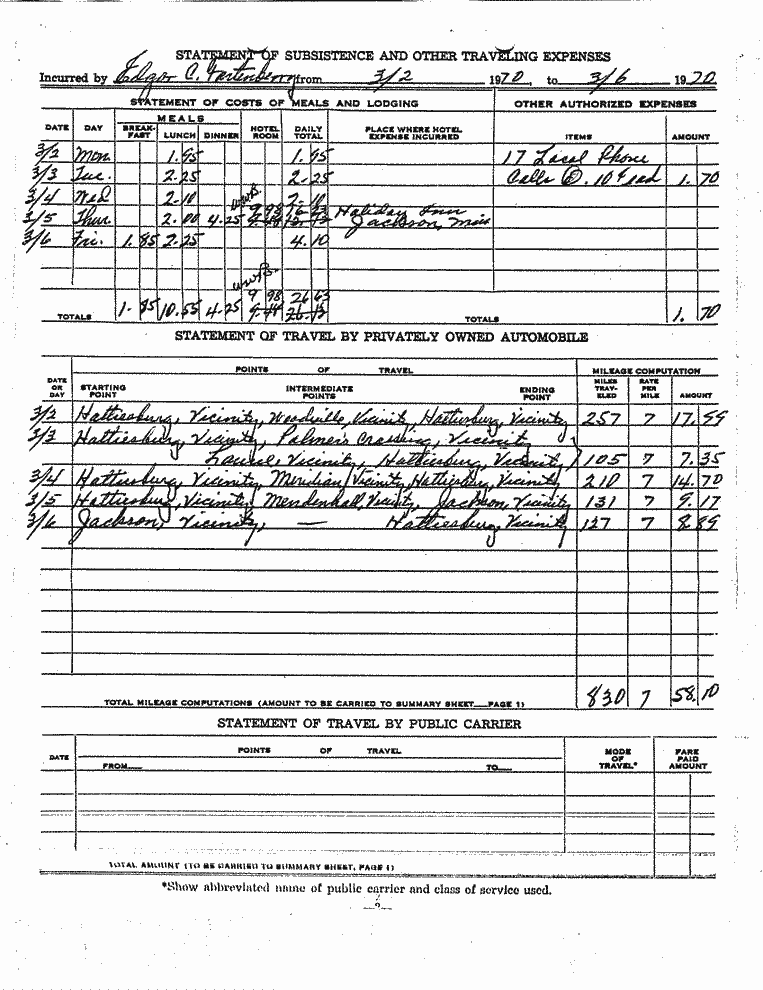 STATEMENT OF SUBSISTENCE AND OTHER TRAVELING EXPENSES
Incurred by Edgar C. Fortenberry from 3/2 1970, to 3/6 1970
STATEMENT OF COSTS OF MEALS AND LODGING OTHER AUTHORIZED EXPENSES
MEALS
DATE DAY BREAK-FAST LUNCH DINNER HOTEL ROOM DAILY TOTAL PLACE WHERE HOTEL EXPENSE INCURRED ITEMS AMOUNT
3/2 Mon. 1.95 1.95 17 Local Phone
3/3 Tue. 2.25 2.25 Calls @ .10¢ ead 1.70
3/4 Wed 2.10 2.10
3/5 Thur. 2.00 4.25 9 98 16 23 Holiday Inn
Jackson, Miss
3/6 Fri. 1.85 2.25 4.10
9 98 26 63
TOTALS 1.85 10.55 4.25 TOTALS 1.70
STATEMENT OF TRAVEL BY PRIVATELY OWNED AUTOMOBILE
POINTS OF TRAVEL MILEAGE COMPUTATION
DATE OR DAY STARTING POINT INTERMEDIATE POINTS ENDING POINT MILES TRAV-ELED RATE PER MILE AMOUNT
3/2 Hattiesburg, Vicinity, Woodville, Vicinity, Hattiesburg, Vicinity 257 7 17.99
3/3 Hattiesburg, Vicinity, Palmer's Crossing, Vicinity
Laurel, Vicinity, Hattiesburg, Vicinity 105 7 7.35
3/4 Hattiesburg, Vicinity, Meridian, Vicinity, Hattiesburg, Vicinity 210 7 14.70
3/5 Hattiesburg, Vicinity, Mendenhall, Vicinity, Jackson, Vicinity 131 7 9.17
3/6 Jackson, Vicinity, — Hattiesburg, Vicinity 127 7 8.89
TOTAL MILEAGE COMPUTATIONS (AMOUNT TO BE CARRIED TO SUMMARY SHEET—PAGE 1) 830 7 58.10
STATEMENT OF TRAVEL BY PUBLIC CARRIER
POINTS OF TRAVEL
DATE FROM— TO— MODE OF TRAVEL* FARE PAID AMOUNT
TOTAL AMOUNT (TO BE CARRIED TO SUMMARY SHEET, PAGE 1)
*Show abbreviated name of public carrier and class of service used.
—2—